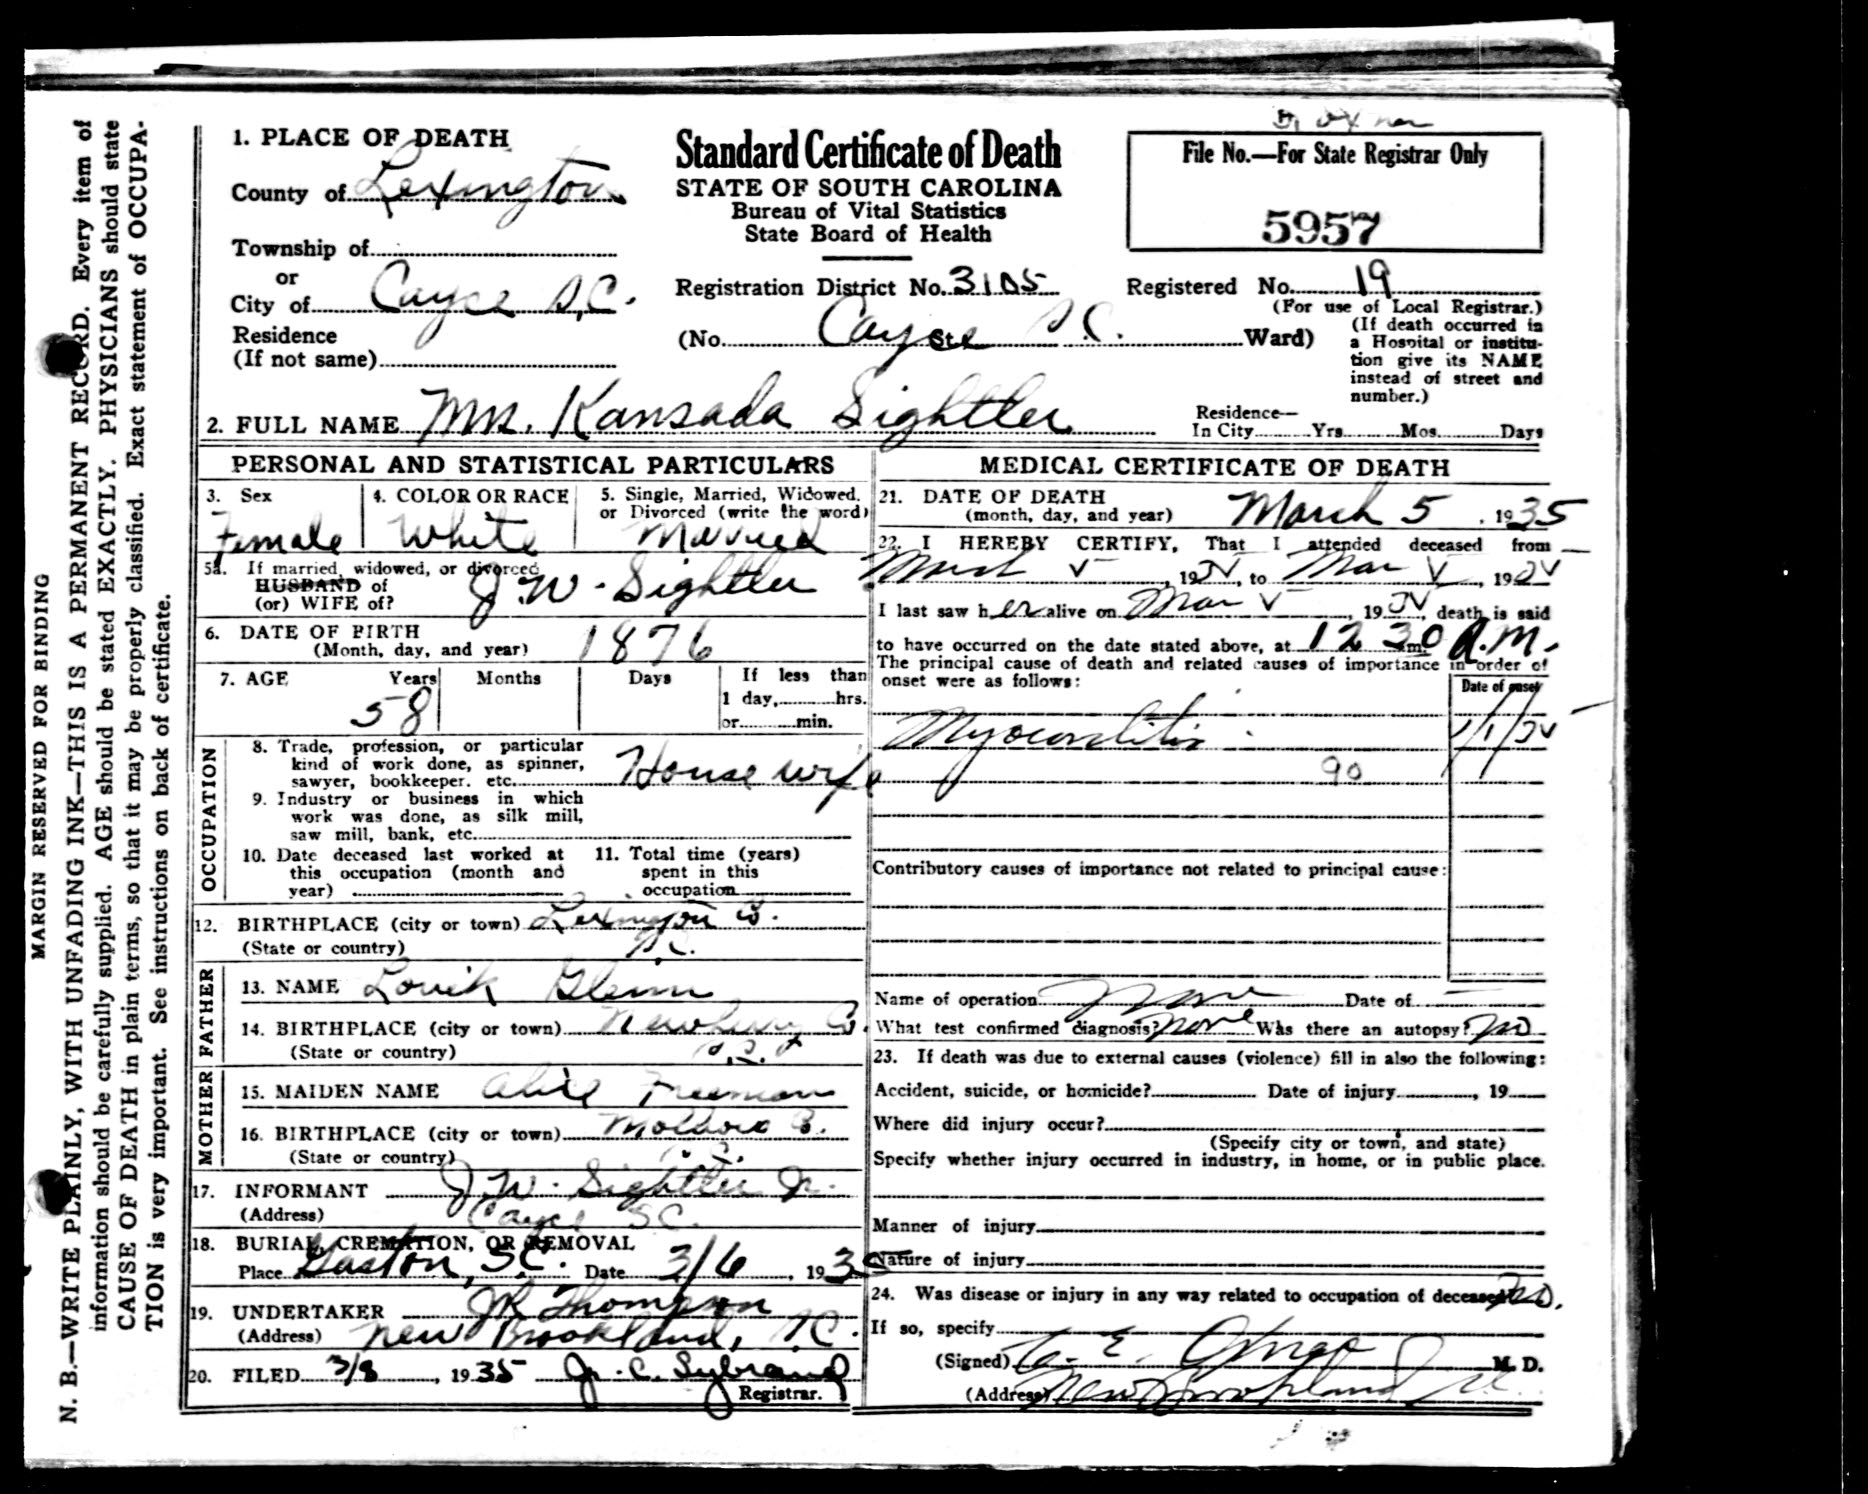 MARGIN RESERVED FOR BINDING
N. B.—WRITE PLAINLY, WITH UNFADING INK—THIS IS A PERMANENT RECORD. Every item of
information should be carefully supplied. AGE should be stated EXACTLY. PHYSICIANS should state
CAUSE OF DEATH in plain terms, so that it may be properly classified. Exact statement of OCCUPA-
TION is very important. See instructions on back of certificate.
1. PLACE OF DEATH
County of Lexington
Township of
or
City of Cayce S.C.
Residence
(If not same)
Standard Certificate of Death
STATE OF SOUTH CAROLINA
Bureau of Vital Statistics
State Board of Health
Registration District No. 3105
(No. Cayce St. S.C. Ward)
File No.—For State Registrar Only
5957
Registered No. 19
(For use of Local Registrar.)
(If death occurred in
a Hospital or institu-
tion give its NAME
instead of street and
number.)
2. FULL NAME Mrs. Kansada Sightler
Residence—
In City Yrs. Mos. Days
PERSONAL AND STATISTICAL PARTICULARS
3. Sex
Female
4. COLOR OR RACE
White
5. Single, Married, Widowed,
or Divorced (write the word)
Married
5a. If married, widowed, or divorced
HUSBAND of
(or) WIFE of?
J. W. Sightler
6. DATE OF BIRTH
(Month, day, and year) 1876
7. AGE Years Months Days If less than
58 1 day, hrs.
or min.
OCCUPATION
8. Trade, profession, or particular
kind of work done, as spinner,
sawyer, bookkeeper, etc. House wife
9. Industry or business in which
work was done, as silk mill,
saw mill, bank, etc.
10. Date deceased last worked at
this occupation (month and
year)
11. Total time (years)
spent in this
occupation
12. BIRTHPLACE (city or town) Lexington Co.
(State or country) S.C.
FATHER
13. NAME Lovik Glenn
14. BIRTHPLACE (city or town) Newberry Co.
(State or country) S.C.
MOTHER
15. MAIDEN NAME Alice Freeman
16. BIRTHPLACE (city or town) Co.
(State or country)
17. INFORMANT J. W. Sightler Jr.
(Address) Cayce S.C.
18. BURIAL, CREMATION, OR REMOVAL
Place Gaston, S.C. Date 3/6, 1935
19. UNDERTAKER JR Thompson
(Address) New Brookland, S.C.
20. FILED 3/8, 1935 J. C. Sybrand
Registrar.
MEDICAL CERTIFICATE OF DEATH
21. DATE OF DEATH
(month, day, and year) March 5, 1935
22. I HEREBY CERTIFY, That I attended deceased from
March 5, 1935, to Mar 5, 1935
I last saw her alive on Mar 5, 1935, death is said
to have occurred on the date stated above, at 12 30 m. A.M.
The principal cause of death and related causes of importance in order of
onset were as follows:
Date of onset
Myocarditis 1/1/35
90
Contributory causes of importance not related to principal cause:
Name of operation None Date of —
What test confirmed diagnosis? None Was there an autopsy? No
23. If death was due to external causes (violence) fill in also the following:
Accident, suicide, or homicide? Date of injury, 19
Where did injury occur?
(Specify city or town, and state)
Specify whether injury occurred in industry, in home, or in public place.
Manner of injury
Nature of injury
24. Was disease or injury in any way related to occupation of deceased? No.
If so, specify
(Signed) M. D.
(Address) New Brookland S.C.